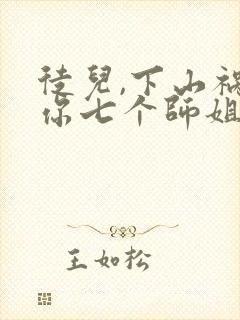 徒兒,下山禍
你七个師姐
王如松